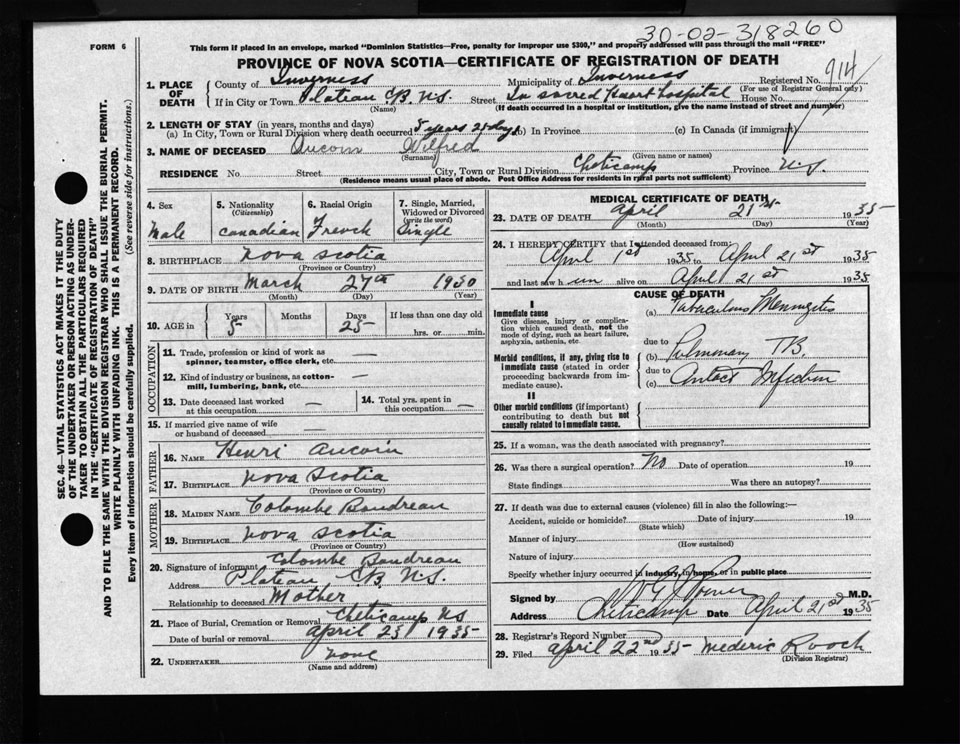 30-02-318260
FORM 6
This form if placed in an envelope, marked "Dominion Statistics—Free, penalty for improper use $300," and properly addressed will pass through the mail "FREE"
PROVINCE OF NOVA SCOTIA—CERTIFICATE OF REGISTRATION OF DEATH
1. PLACE OF DEATH County of Inverness Municipality of Inverness Registered No. 914
(For use of Registrar General only)
If in City or Town Plateau C.B. N.S. Street In sacred Heart hospital House No.
(Name) (If death occurred in a hospital or institution, give the name instead of street and number)
2. LENGTH OF STAY (in years, months and days)
(a) In City, Town or Rural Division where death occurred 5 years 21 days (b) In Province (c) In Canada (if immigrant)
3. NAME OF DECEASED Aucoin Wilfred
(Surname) (Given name or names)
RESIDENCE No. Street City, Town or Rural Division Cheticamp Province N.S.
(Residence means usual place of abode. Post Office Address for residents in rural parts not sufficient)
4. Sex 5. Nationality (Citizenship) 6. Racial Origin 7. Single, Married, Widowed or Divorced (write the word)
Male Canadian French Single
8. BIRTHPLACE Nova Scotia
(Province or Country)
9. DATE OF BIRTH March 27th 1930
(Month) (Day) (Year)
10. AGE in Years Months Days If less than one day old
5 25 hrs. or min.
OCCUPATION
11. Trade, profession or kind of work as spinner, teamster, office clerk, etc. —
12. Kind of industry or business, as cotton-mill, lumbering, bank, etc. —
13. Date deceased last worked at this occupation — 14. Total yrs. spent in this occupation —
15. If married give name of wife or husband of deceased —
FATHER
16. NAME Henri Aucoin
17. BIRTHPLACE Nova Scotia
(Province or Country)
MOTHER
18. MAIDEN NAME Colombe Boudreau
19. BIRTHPLACE Nova Scotia
(Province or Country)
20. Signature of informant Colombe Boudreau
Address Plateau, C.B. N.S.
Relationship to deceased Mother
21. Place of Burial, Cremation or Removal Cheticamp NS
Date of burial or removal April 23 1935
22. UNDERTAKER none
(Name and address)
MEDICAL CERTIFICATE OF DEATH
23. DATE OF DEATH April 21st 1935
(Month) (Day) (Year)
24. I HEREBY CERTIFY that I attended deceased from:
April 1st 1935 to April 21st 1935
and last saw h im alive on April 21st 1935
CAUSE OF DEATH
I
Immediate cause
Give disease, injury or complication which caused death, not the mode of dying, such as heart failure, asphyxia, asthenia, etc.
(a) Tubaculous Meningitis
due to
Morbid conditions, if any, giving rise to immediate cause (stated in order proceeding backwards from immediate cause).
(b) Pulmonary TB.
due to
(c) Contact Infection
II
Other morbid conditions (if important) contributing to death but not causally related to immediate cause.
25. If a woman, was the death associated with pregnancy?
26. Was there a surgical operation? No Date of operation 19
State findings Was there an autopsy?
27. If death was due to external causes (violence) fill in also the following:—
Accident, suicide or homicide? Date of injury 19
(State which)
Manner of injury
(How sustained)
Nature of injury
Specify whether injury occurred in industry, in home, or in public place
Signed by M.D.
Address Cheticamp Date April 21st 1935
28. Registrar's Record Number
29. Filed April 22nd 1935 Mederic Roach
(Division Registrar)
SEC. 46—VITAL STATISTICS ACT MAKES IT THE DUTY
OF THE UNDERTAKER OR PERSON ACTING AS UNDER-
TAKER TO OBTAIN ALL THE PARTICULARS REQUIRED
IN THE "CERTIFICATE OF REGISTRATION OF DEATH"
AND TO FILE THE SAME WITH THE DIVISION REGISTRAR WHO SHALL ISSUE THE BURIAL PERMIT.
WRITE PLAINLY WITH UNFADING INK. THIS IS A PERMANENT RECORD.
Every item of information should be carefully supplied. (See reverse side for instructions.)